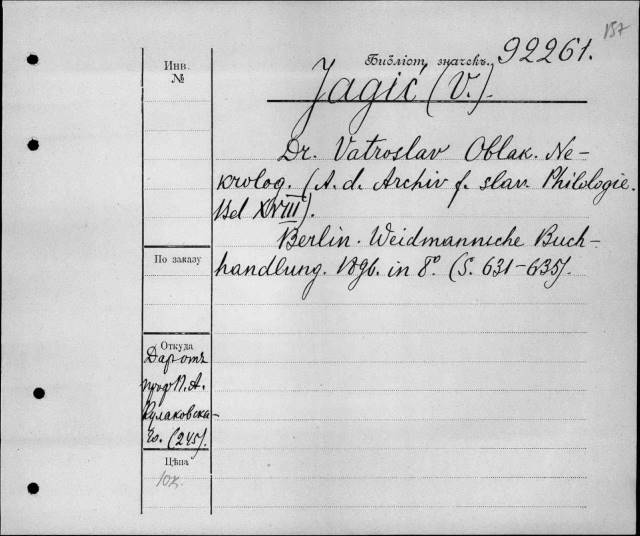 157
Инв. №
Библіот. значекъ. 92261.
Jagić (V.).
Dr. Vatroslav Oblak. Ne-
krolog. (A. d. Archiv f. slav. Philologie.
Bd XVIII).
Berlin. Weidmannsche Buch-
handlung. Bgb. in 8º. (S. 631-635).
По заказу
Откуда
Даръ отъ
проф. П. А.
Кулаковска-
го. (245).
Цѣна
10к.